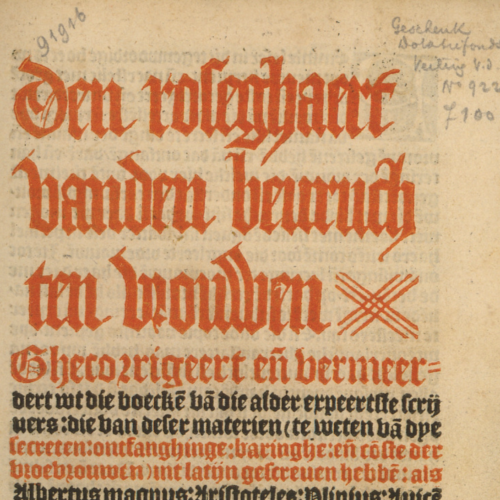 91916
Geschenk
Nº 922
Den roseghaert
vanden beuruch
ten vrouwen
Ghecorrigeert eñ vermeer=
dert wt die boeckē vā die alder expeertste scrij
uers : die van deser materien (te weten vā dye
secreten : ontfanghinge : baringhe : eñ cōste der
vroevrouwen) int latijn gescreuen hebbē : als
Albertus magnus : Aristoteles : Plinius :